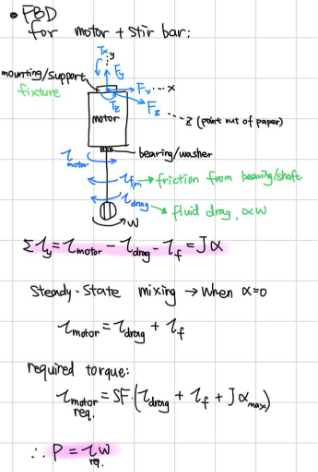 • FBD
for motor + stir bar:
Tx y
Fy
mounting/support
fixture
Fx ... x
Tz
Fz
motor
... z (point out of paper)
bearing/washer
τmotor
τfm → friction from bearing/shaft
τdrag → fluid drag, ∝W
W
Στy = τmotor - τdrag - τf = Jα
Steady-State mixing → when α=0
τmotor = τdrag + τf
required torque:
τmotor req. = SF·(τdrag + τf + Jαmax)
∴ P = τreq. W